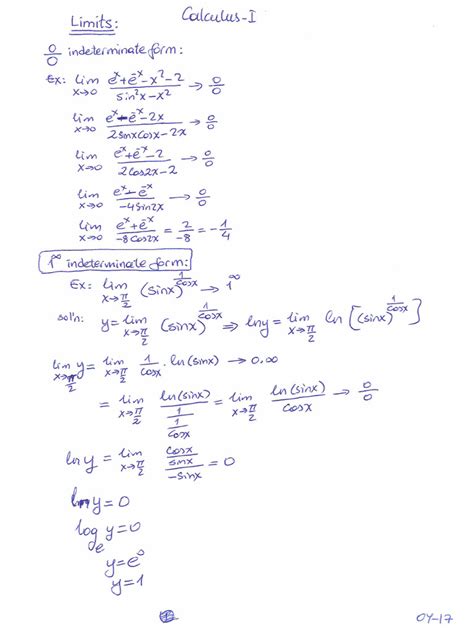 Calculus-I
Limits:
0/0 indeterminate form:
Ex: lim x→0 (e^x+e^-x-x^2-2)/(sin^2x-x^2) → 0/0
lim x→0 (e^x-e^-x-2x)/(2sinxcosx-2x) → 0/0
lim x→0 (e^x+e^-x-2)/(2cos2x-2) → 0/0
lim x→0 (e^x-e^-x)/(-4sin2x) → 0/0
lim x→0 (e^x+e^-x)/(-8cos2x) = 2/-8 = -1/4
1^∞ indeterminate form:
Ex: lim x→π/2 (sinx)^(1/cosx) → 1^∞
sol'n: y = lim x→π/2 (sinx)^(1/cosx) ⇒ lny = lim x→π/2 ln[(sinx)^(1/cosx)]
lim x→π/2 y = lim x→π/2 1/cosx . ln(sinx) → 0.∞
= lim x→π/2 ln(sinx)/(1/(1/cosx)) = lim x→π/2 ln(sinx)/cosx → 0/0
lny = lim x→π/2 (cosx/sinx)/(-sinx) = 0
lny = 0
log_e y = 0
y = e^0
y = 1
1
OY-17